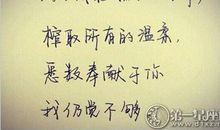 榨取所有的温柔,
悉数奉献于你
我仍觉不够
第一星座